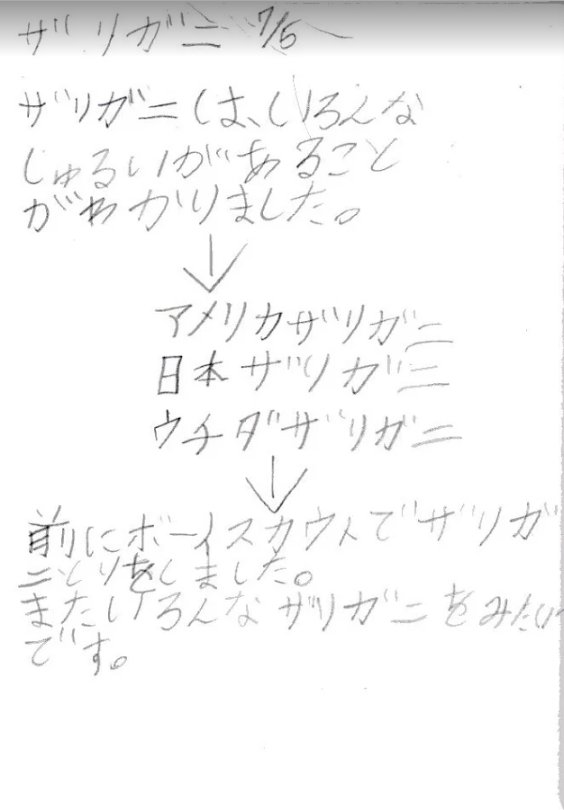 ザリガニ 7/5
ザリガニは、いろんな
しゅるいがあること
がわかりました。
アメリカザリガニ
日本ザリガニ
ウチダザリガニ
前にボーイスカウトでザリガ
ニとりをしました。
またいろんなザリガニをみたい
です。